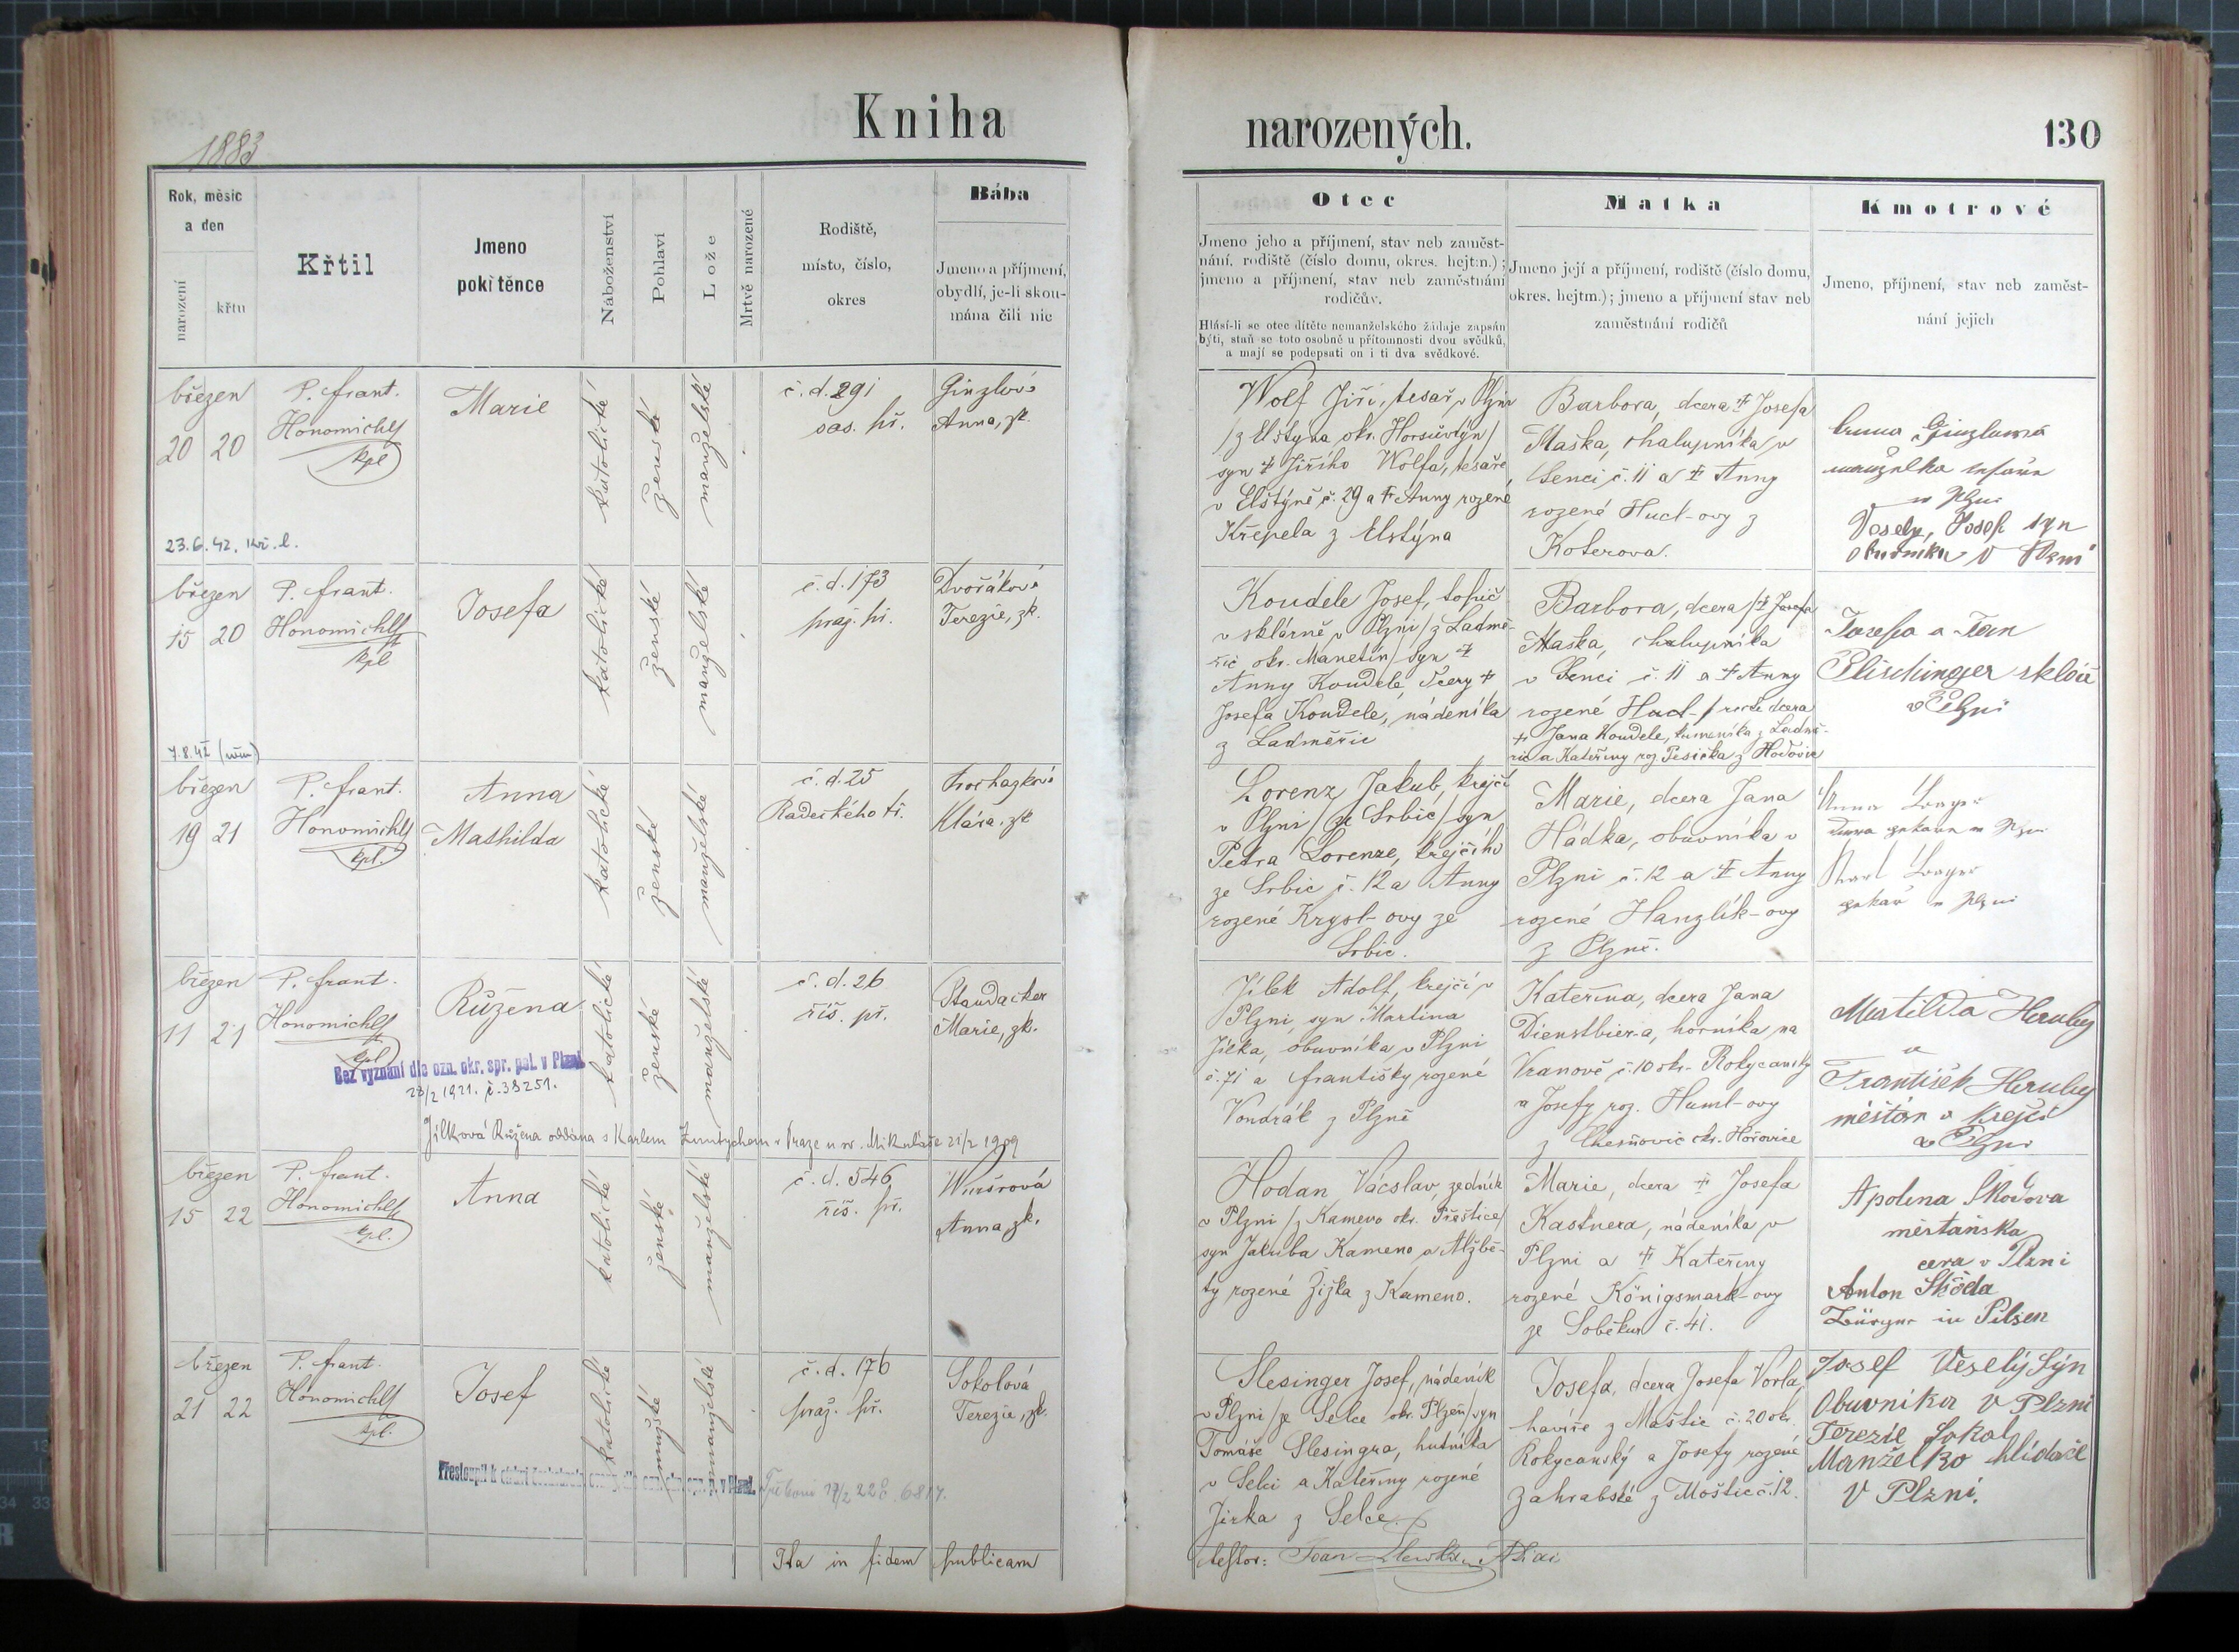 Kniha
1883
Rok, měsíc
a den
narození
křtu
Křtil
Jmeno
pokřtěnce
Náboženství
Pohlaví
Lože
Mrtvě narozené
Rodiště,
místo, číslo,
okres
Bába
Jmeno a příjmení,
obydlí, je-li skou-
mána čili nic
březen
20 20
P. Frant.
Honomichl
kpl
Marie
katolické
ženské
manželské
č. d. 291
sas. př.
Ginzlová
Anna, zk.
23.6.42. kř. l.
březen
15 20
P. Frant.
Honomichl
kpl
Josefa
katolické
ženské
manželské
č. d. 173
praž. př.
Dvořáková
Terezie, zk.
7.8.42 (něm)
březen
19 21
P. Frant.
Honomichl
kpl.
Anna
Mathilda
katolické
ženské
manželské
č. d. 25
Radeckého tř.
Procházková
Klára, zk
březen
11 21
P. Frant.
Honomichl
kpl
Růžena
katolické
ženské
manželské
č. d. 26
říš. př.
Staudacher
Marie, zk.
Bez vyznání dle ozn. okr. spr. pol. v Plzni
28/2 1921. č. 38251.
Jílková Růžena oddána s Karlem v Praze u sv. Mikuláše 21/2 1909
březen
15 22
P. Frant.
Honomichl
kpl.
Anna
katolické
ženské
manželské
č. d. 546
říš. př.
Anna zk.
březen
21 22
P. Frant.
Honomichl
kpl.
Josef
katolické
mužské
manželské
č. d. 176
praž. př.
Sokolová
Terezie, zk.
Přestoupil k církvi československé v Plzni
17/2 22 č. 6817.
Ita in fidem publicam
narozených.
130
Otec
Jmeno jeho a příjmení, stav neb zaměst-
nání, rodiště (číslo domu, okres. hejtm.);
jmeno a příjmení, stav neb zaměstnání
rodičův.
Hlásí-li se otec dítěte nemanželského žádaje zapsán
býti, staň se toto osobně u přítomnosti dvou svědků,
a mají se podepsati on i ti dva svědkové.
Matka
Jmeno její a příjmení, rodiště (číslo domu,
okres. hejtm.); jmeno a příjmení stav neb
zaměstnání rodičů
Kmotrové
Jmeno, příjmení, stav neb zaměst-
nání jejich
Wolf Jiří, tesař v Plzni
/z Elstýna okr. Horšův týn/
syn † Jiřího Wolfa, tesaře
v Elstýně č. 29 a † Anny rozené
Křepela z Elstýna
Barbora, dcera † Josefa
Maška, chalupníka v
Senci č. 11 a † Anny
rozené Hucl-ovy z
Koterova.
Anna Ginzlová
manželka tesaře
v Plzni
Veselý, Josef syn
obuvníka v Plzni
Koudele Josef, topič
v sklárně v Plzni /z Ladmě-
řic, okr. Manetín/ syn †
Anny Koudele, dcery †
Josefa Koudele, nádeníka
z Ladměřic
Barbora, dcera /† Josefa
Maška, chalupníka
v Senci č. 11 a † Anny
rozené Hucl-/ dcera
† Jana Koudele, z Ladmě-
řic a Kateřiny roz. Pešička z Hodovic
Josefa a Jan
Plischinger sklář
v Plzni
Lorenz Jakub, krejčí
v Plzni /ze Srbic/ syn
Petra Lorenze, krejčího
ze Srbic č. 12 a Anny
rozené Krysl-ovy ze
Srbic.
Marie, dcera Jana
Hádka, obuvníka v
Plzni č. 12 a † Anny
rozené Hanzlík-ovy
z Plzně.
Anna
pekaře v Plzni
Karl
pekař v Plzni
Jílek Adolf, krejčí v
Plzni, syn Martina
Jílka, obuvníka v Plzni
č. 71 a Františky rozené
Vondrák z Plzně
Kateřina, dcera Jana
Dienstbier-a, horníka na
Vranově č. 10 okr. Rokycanský
a Josefy roz. Huml-ovy
z okr. Hořovice
Matilda Hruby
a
František Hruby
měšťan a krejčí
v Plzni
Hodan Václav, zedník
v Plzni /z Kameno okr. Přeštice/
syn Jakuba Kameno a Alžbě-
ty rozené Žižka z Kameno.
Marie, dcera † Josefa
Kastnera, nádeníka v
Plzni a † Kateřiny
rozené Königsmark-ovy
ze Soběkur č. 41.
Apolena Škodova
měšťanska
cera v Plzni
Anton Škoda
in Pilsen
Slesinger Josef, nádeník
v Plzni /ze Selce okr. Plzeň/ syn
Tomáše Slesingra, hutníka
v Selci a Kateřiny rozené
Jirka z Selce.
Josefa, dcera Josefa Vorla,
havíře z Moštic č. 20 okr.
Rokycanský a Josefy rozené
Zahrabské z Moštic č. 12.
Josef Veselý Syn
Obuvnika v Plzni
Terezie Sokol
Manželko hlídače
V Plzni.
testor: Joan